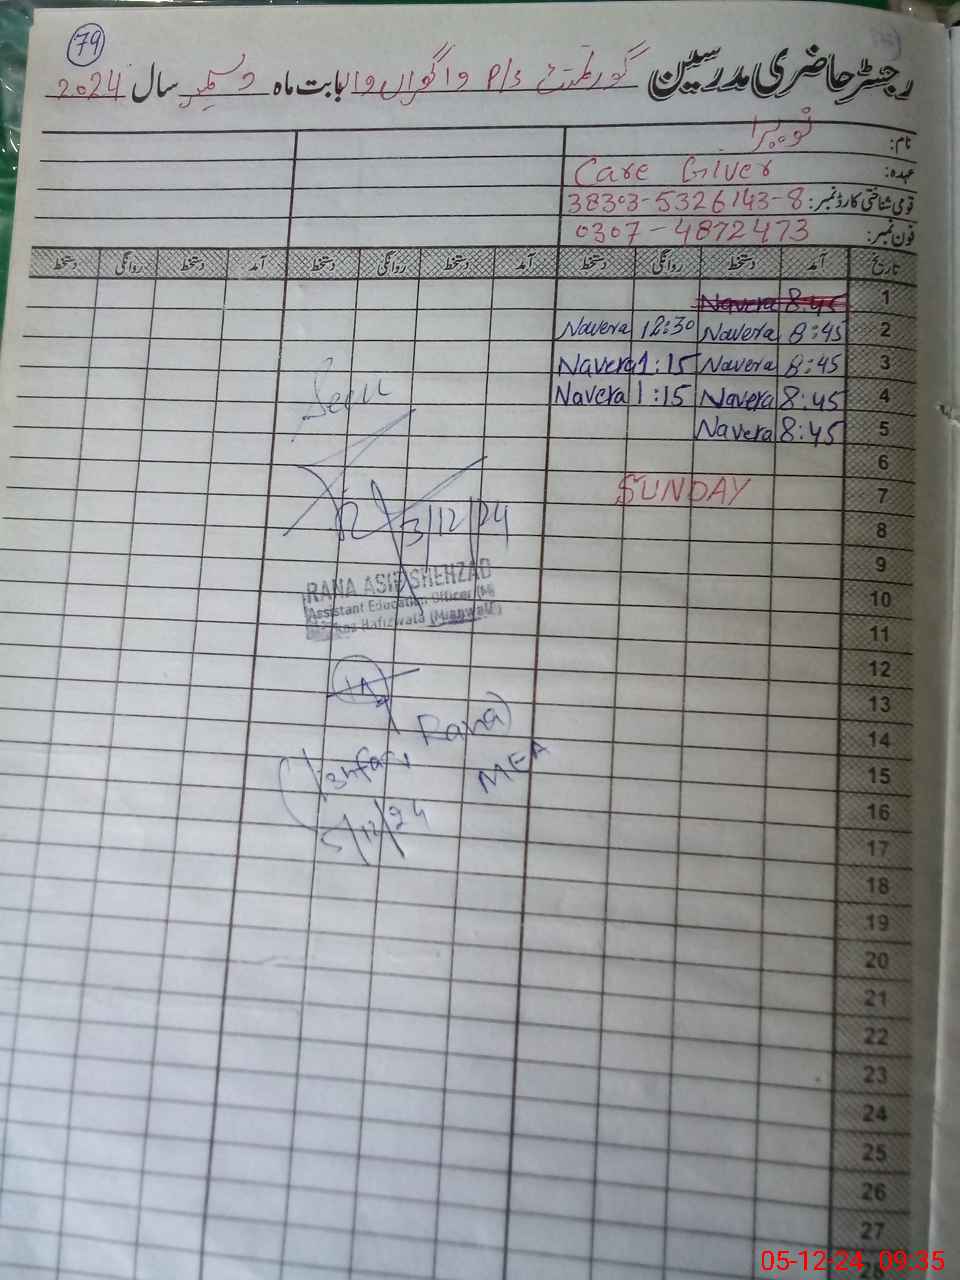 79
رجسٹر حاضری مدرسین گورنمنٹ P/S واگواں والا بابت ماہ دسمبر سال 2024
نام: نویرا
عہدہ: Care Giver
قومی شناختی کارڈ نمبر: 38303-5326143-8
فون نمبر: 0307-4872473
تاریخ آمد دستخط روانگی دستخط آمد دستخط روانگی دستخط آمد دستخط روانگی دستخط
1 8:45 Navera
2 8:45 Navera 12:30 Navera
3 8:45 Navera 1:15 Navera
4 8:45 Navera 1:15 Navera
5 8:45 Navera
6
7 SUNDAY
8
9
10
11
12
13
14
15
16
17
18
19
20
21
22
23
24
25
26
27
28
Seen
3/12/24
RANA ASIF SHEHZAD
Assistant Education Officer (M)
Hafizwala (Mianwali)
Rana
MEA
5/12/24
05-12-24 09:35